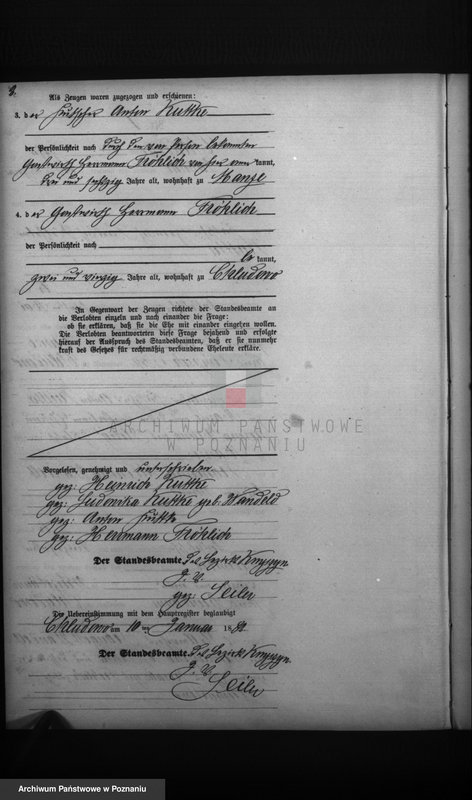 2.
Als Zeugen waren zugezogen und erschienen:
3. der Anton Kuttke
der Persönlichkeit nach durch den von Person bekannten
Gastwirth Herrmann Fröhlich kannt,
drei und sechszig Jahre alt, wohnhaft zu
4. der Gastwirth Herrmann Fröhlich
der Persönlichkeit nach
be kannt,
zwei und vierzig Jahre alt, wohnhaft zu Chludowo
In Gegenwart der Zeugen richtete der Standesbeamte an
die Verlobten einzeln und nach einander die Frage:
ob sie erklären, daß sie die Ehe mit einander eingehen wollen.
Die Verlobten beantworteten diese Frage bejahend und erfolgte
hierauf der Ausspruch des Standesbeamten, daß er sie nunmehr
kraft des Gesetzes für rechtmäßig verbundene Eheleute erkläre.
ARCHIWUM PAŃSTWOWE
W POZNANIU
Vorgelesen, genehmigt und unterschrieben
gez: Heinrich Kuttke
gez: Ludowika Kuttke geb: Wandeld
gez: Anton Kuttke
gez: Herrmann Fröhlich
Der Standesbeamte
J. V.
gez: Seiler
Die Uebereinstimmung mit dem Hauptregister beglaubigt
Chludowo am 10 ten Januar 18
Der Standesbeamte
J. V.
Seiler
Archiwum Państwowe w Poznaniu